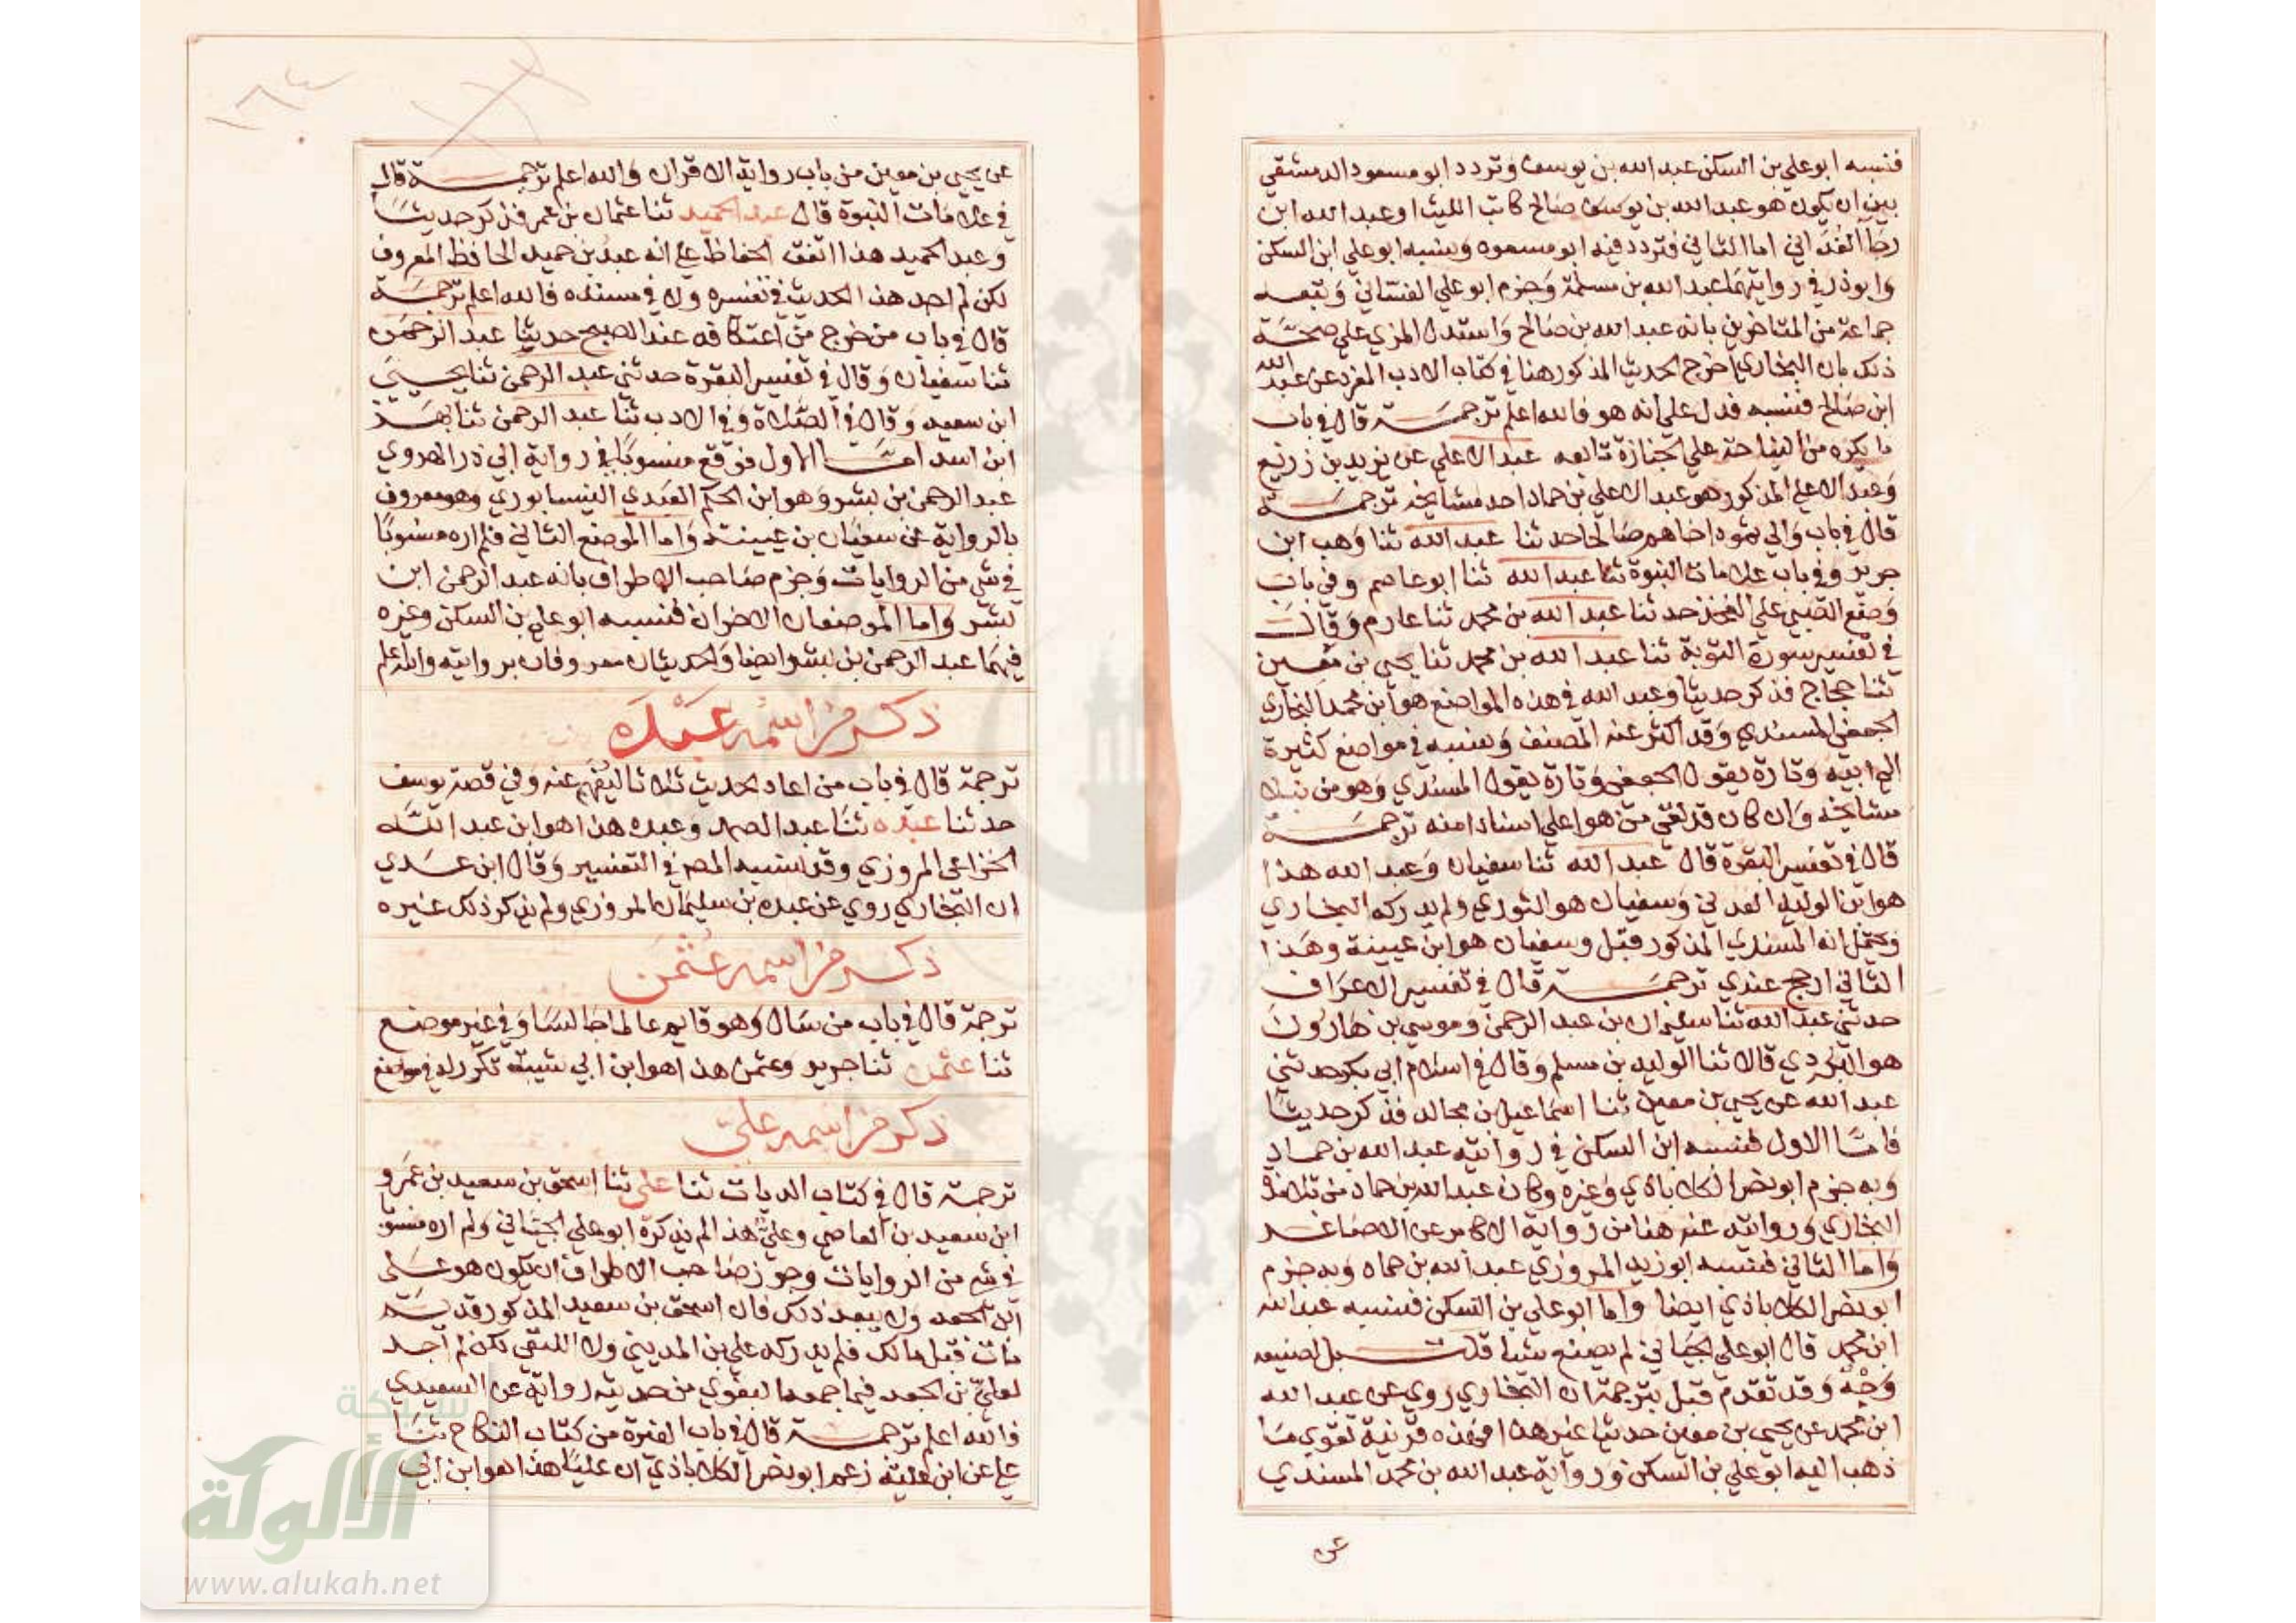 فنسبه ابو علي بن السكن عبد الله بن يوسف وتردد ابو مسعود الدمشقي
بين ان يكون هو عبد الله بن يوسف صالح كاتب الليث او عبد الله ابن
رجا الغداني اما الثاني فتردد فيه ابو مسعود ونسبه ابو علي ابن السكن
وابو ذر في روايتهما عبد الله بن مسلمة وجزم ابو علي الغساني وتبعه
جماعة من المتاخرين بانه عبد الله بن صالح واستدل المزي علي صحة
ذلك بان البخاري اخرج الحديث المذكور هنا في كتاب الادب المفرد عن عبد الله
ابن صالح فنسبه فدل علي انه هو فالله اعلم ترجمة قال في باب
ما يكره من النياحة علي الجنازة تابعه عبد الاعلي عن يزيد بن زريع
وعبد الاعلي المذكور هو عبد الاعلي بن حماد احد مشايخه ترجمة
قال في باب والي ثمود اخاهم صالحا حدثنا عبد الله ثنا وهب ابن
جرير وفي باب علامات النبوة ثنا عبد الله ثنا ابو عاصم وفي باب
وضع الصبي علي الفخذ حدثنا عبد الله بن محمد ثنا عارم وقال
في تفسير سورة التوبة ثنا عبد الله بن محمد ثنا يحيى بن معين
ثنا حجاج فذكر حديثا وعبد الله في هذه المواضع هو ابن محمد البخاري
الجعفي المسندي وقد اكثر عنه المصنف ونسبه في مواضع كثيرة
الي ابيه وتارة يقول الجعفي وتارة يقول المسندي وهو من نبلا
مشايخه وان كان قد لقي من هو اعلي اسنادا منه ترجمة
قال في تفسير البقرة قال عبد الله ثنا سفيان وعبد الله هذا
هو ابن الوليد العدني وسفيان هو الثوري ولم يدركه البخاري
ويحتمل انه المسندي المذكور قبل وسفيان هو ابن عيينة وهذا
الثاني ارجح عندي ترجمة قال في تفسير الاعراف
حدثني عبد الله ثنا سليمان بن عبد الرحمن وموسي بن هارون
هو البردي قالا ثنا الوليد بن مسلم وقال في اسلام ابي بكر حدثني
عبد الله عن يحيى بن معين ثنا اسماعيل بن مجالد فذكر حديثا
فاما الاول فنسبه ابن السكن في روايته عبد الله بن حماد
وبه جزم ابو نصر الكلاباذي وغيره وكان عبد الله بن حماد من تلامذة
البخاري وروايته عنه هنا من رواية الاكابر عن الاصاغر
واما الثاني فنسبه ابو زيد المروزي عبد الله بن حماد وبه جزم
ابو نصر الكلاباذي ايضا واما ابو علي بن السكن فنسبه عبد الله
ابن محمد قال ابو علي الجياني لم يصنع شيا قلت بل لصنيعه
وجه وقد تقدم قبل بترجمة ان البخاري روي عن عبد الله
ابن محمد عن يحيى بن معين حديثا غير هذا فهذه قرينة تقوي ما
ذهب اليه ابو علي بن السكن ورواية عبد الله بن محمد المسندي
عن
عن يحيى بن معين من باب رواية الاقران والله اعلم ترجمة قال
في علامات النبوة قال عبد الحميد ثنا عثمان بن عمر فذكر حديثا
وعبد الحميد هذا اتفق الحفاظ علي انه عبد بن حميد الحافظ المعروف
لكن لم اجد هذا الحديث في تفسيره ولا في مسنده فالله اعلم ترجمة
قال في باب من خرج من اعتكافه عند الصبح حديثا عبد الرحمن
ثنا سفيان وقال في تفسير البقرة حدثني عبد الرحمن ثنا يحيى
ابن سعيد وقال في الصلاة وفي الادب ثنا عبد الرحمن ثنا بهز
ابن اسد اما الاول فوقع منسوبا في رواية ابي ذر الهروي
عبد الرحمن بن بشر وهو ابن الحكم العبدي النيسابوري وهو معروف
بالرواية عن سفيان بن عيينة واما الموضع الثاني فلم اره منسوبا
في شي من الروايات وجزم صاحب الاطراف بانه عبد الرحمن ابن
بشر واما الموضعان الاخران فنسبه ابو علي بن السكن وغيره
فيهما عبد الرحمن بن بشر ايضا والحديثان معروفان بروايته والله اعلم
ذكر من اسمه عبدة
ترجمة قال في باب من اعاد الحديث ثلاثا ليفهم عنه وفي قصة يوسف
حدثنا عبده ثنا عبد الصمد وعبده هذا هو ابن عبد الله
الخزاعي المروزي وقد نسبه المص في التفسير وقال ابن عدي
ان البخاري روي عن عبدة بن سليمان المروزي ولم يذكر ذلك غيره
ذكر من اسمه عثمن
ترجمة قال في باب من سال وهو قايم عالما جالسا وفي غير موضع
ثنا عثمن ثنا جرير وعثمن هذا هو ابن ابي شيبة تكرر له في مواضع
ذكر من اسمه علي
ترجمة قال في كتاب الديات ثنا علي ثنا اسحق بن سعيد بن عمرو
ابن سعيد بن العاصي وعلي هذا لم يذكره ابو علي الجياني ولم اره منسوبا
في شي من الروايات وجوز صاحب الاطراف ان يكون هو علي
ابن الجعد ولا يبعد ذلك فان اسحق بن سعيد المذكور قديم
مات قبل مالك فلم يدركه علي بن المديني ولا اللبقي لكن لم اجد
لعلي بن الجعد فيما جمعه البغوي من حديثه رواية عن السعيدي
فالله اعلم ترجمة قال في باب الغيرة من كتاب النكاح ثنا
علي عن ابن علية زعم ابو نصر الكلاباذي ان عليا هذا هو ابن ابي
شبكة
الألوكة
www.alukah.net